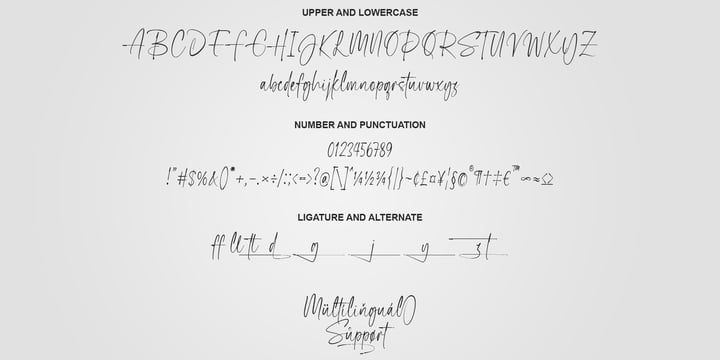 UPPER AND LOWERCASE
ABCDEFGHIJKLMNOPQRSTUVWXYZ
abcdefghijklmnopqrstuvwxyz
NUMBER AND PUNCTUATION
0123456789
!"#$%&()*+,-.×÷/:;<=>?@[\]^¼½¾{|}~¢£¤¥¦§©®¶†‡€™∞≈Ω
LIGATURE AND ALTERNATE
ff ll tt d g j y z t
Múltilingual
Support